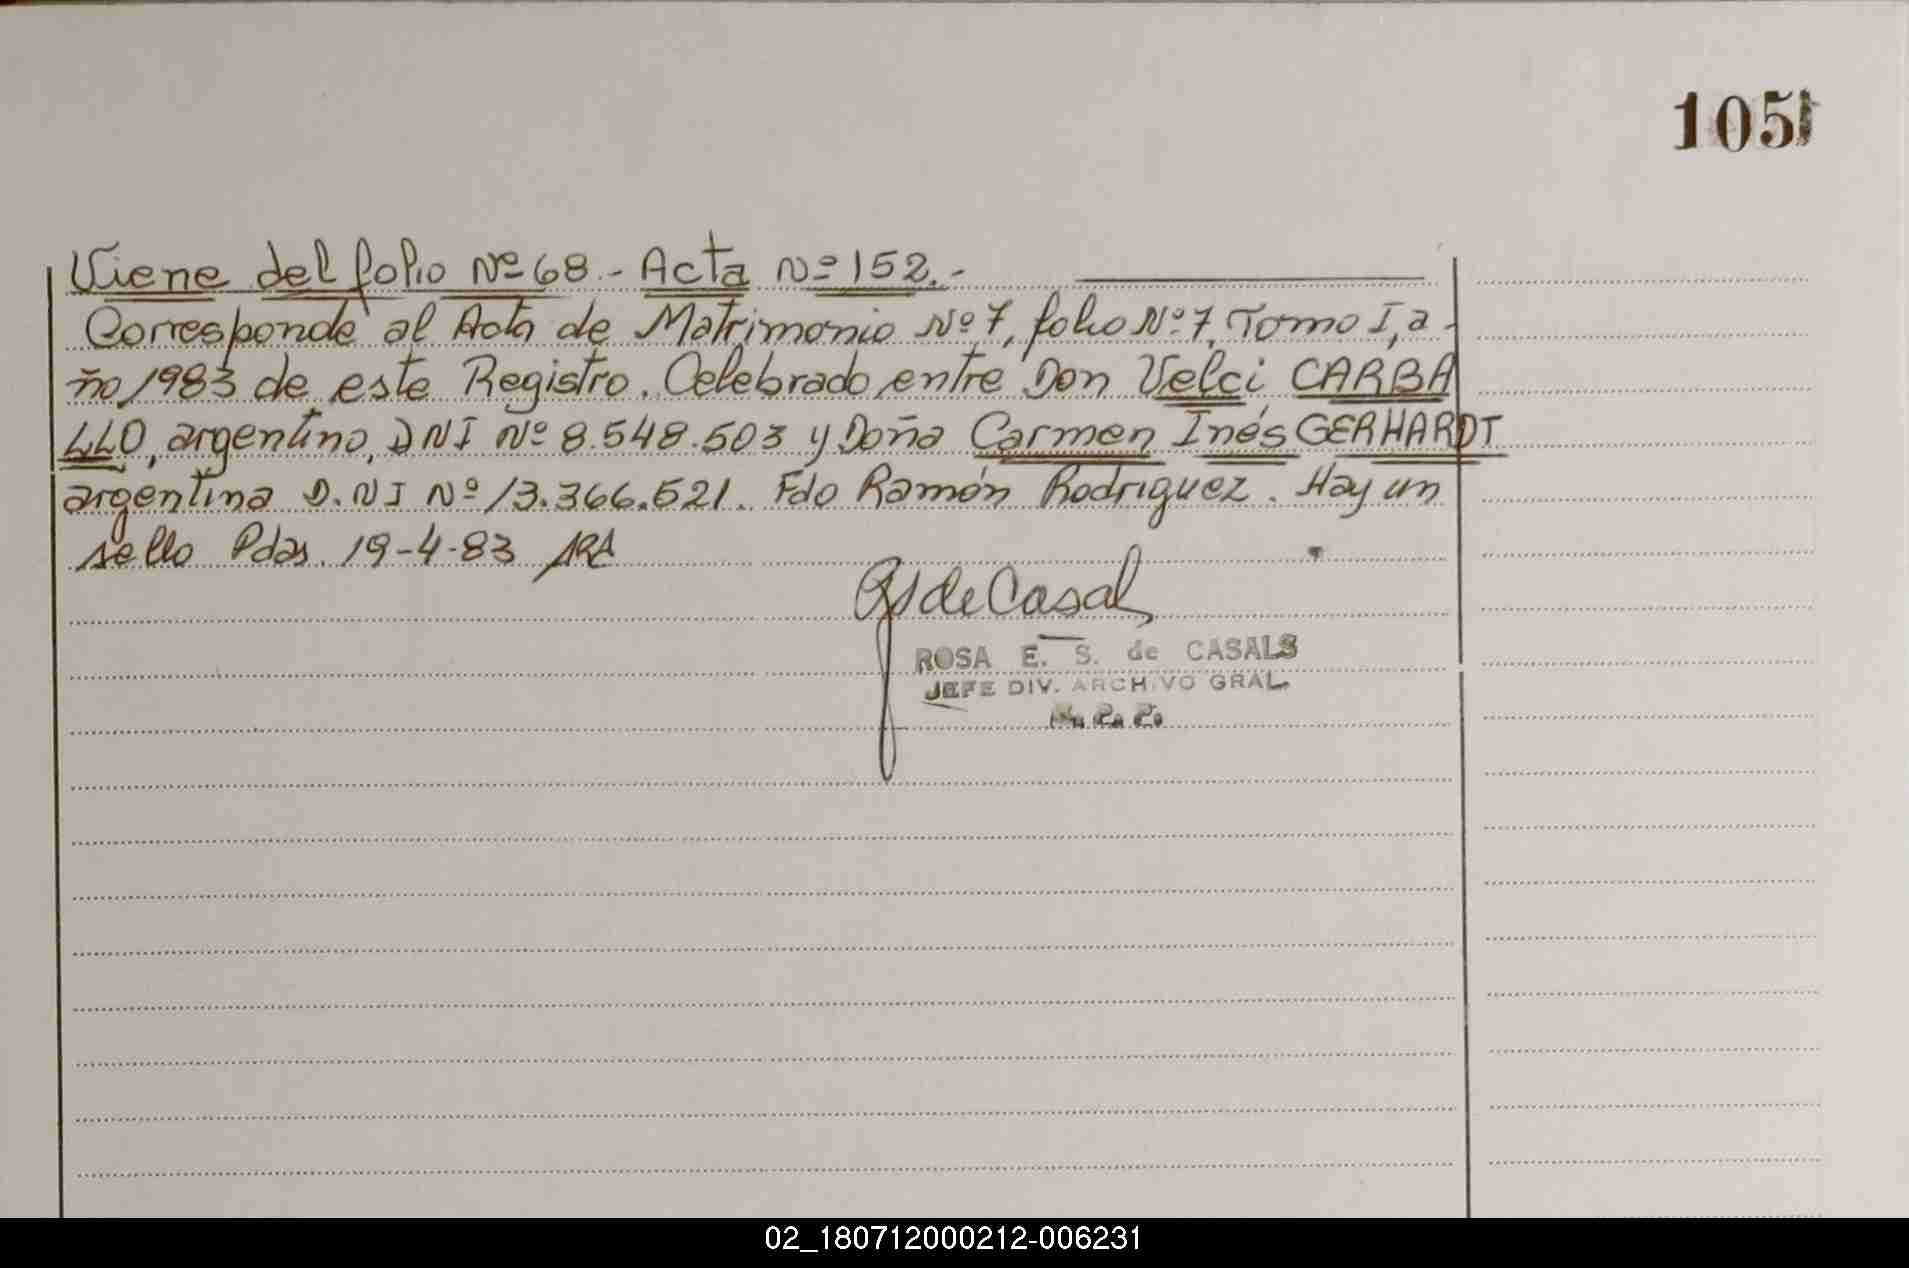 105
Viene del folio Nº 68.- Acta Nº 152.-
Corresponde al Acta de Matrimonio Nº 7, folio Nº 7, Tomo I, a-
ño 1983 de este Registro. Celebrado entre Don Velci CARBA
LLO, argentino, DNI Nº 8.548.503 y Doña Carmen Inés GERHARDT
argentina D.N I Nº 13.366.521. Fdo Ramón Rodriguez. Hay un
sello Pdas. 19-4-83
RS de Casal
ROSA E. S. de CASALS
JEFE DIV. ARCHIVO GRAL.
02_180712000212-006231